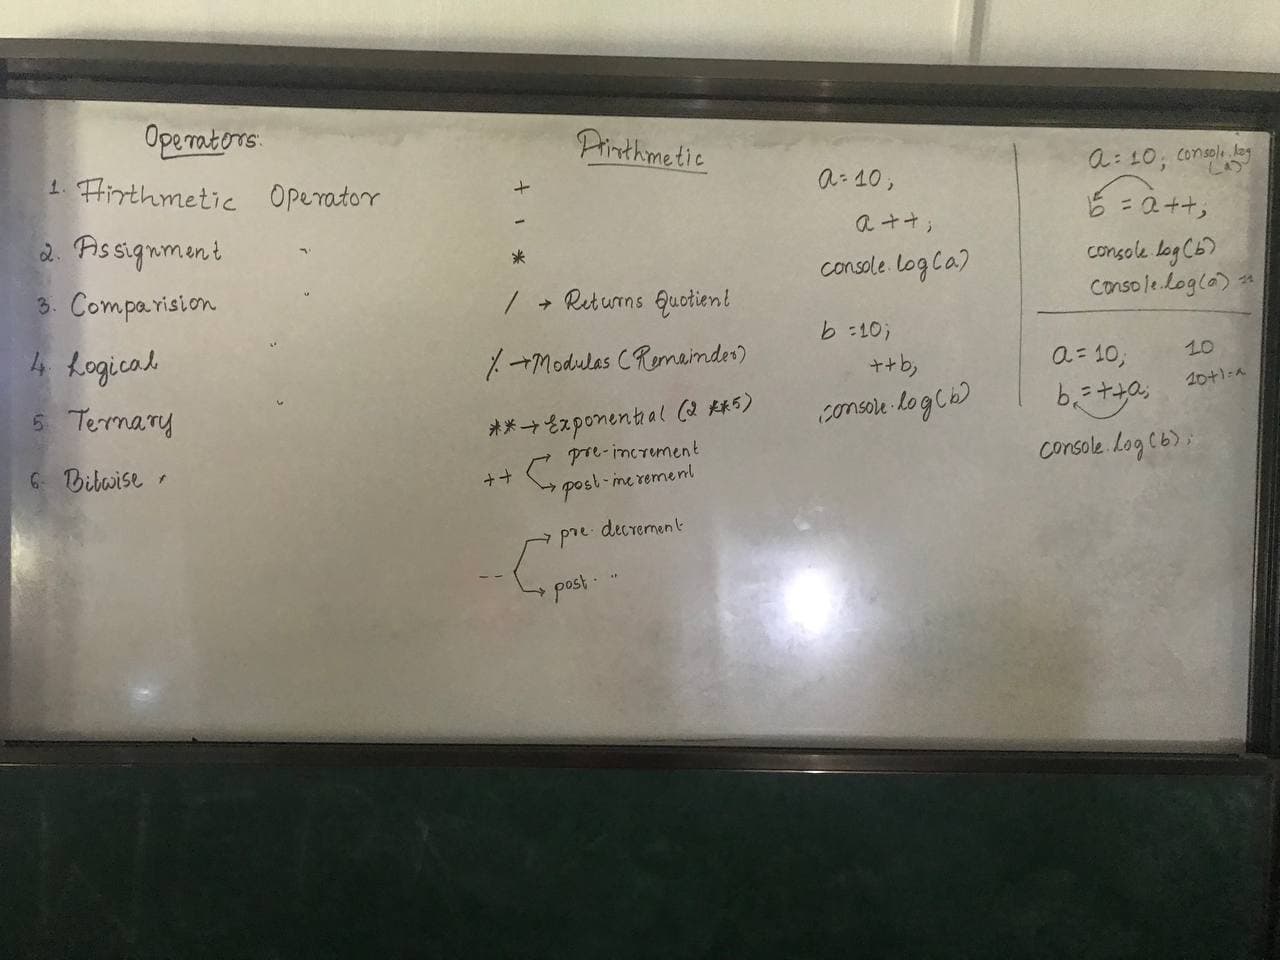 Operators:
1. Airthmetic Operator
2. Assignment "
3. Comparision "
4. Logical "
5. Ternary "
6. Bitwise "
Airthmetic
+
-
*
/ → Returns Quotient
% → Modulas (Remainder)
** → Exponential (2 **5)
++ → pre-increment
→ post-increment
-- → pre-decrement
→ post- "
a=10;
a++;
console.log(a)
b=10;
++b;
console.log(b)
a=10; console.log
(a)
b = a++;
console.log(b)
console.log(a)
a=10; 10
b=++a; 10+1=
console.log(b);